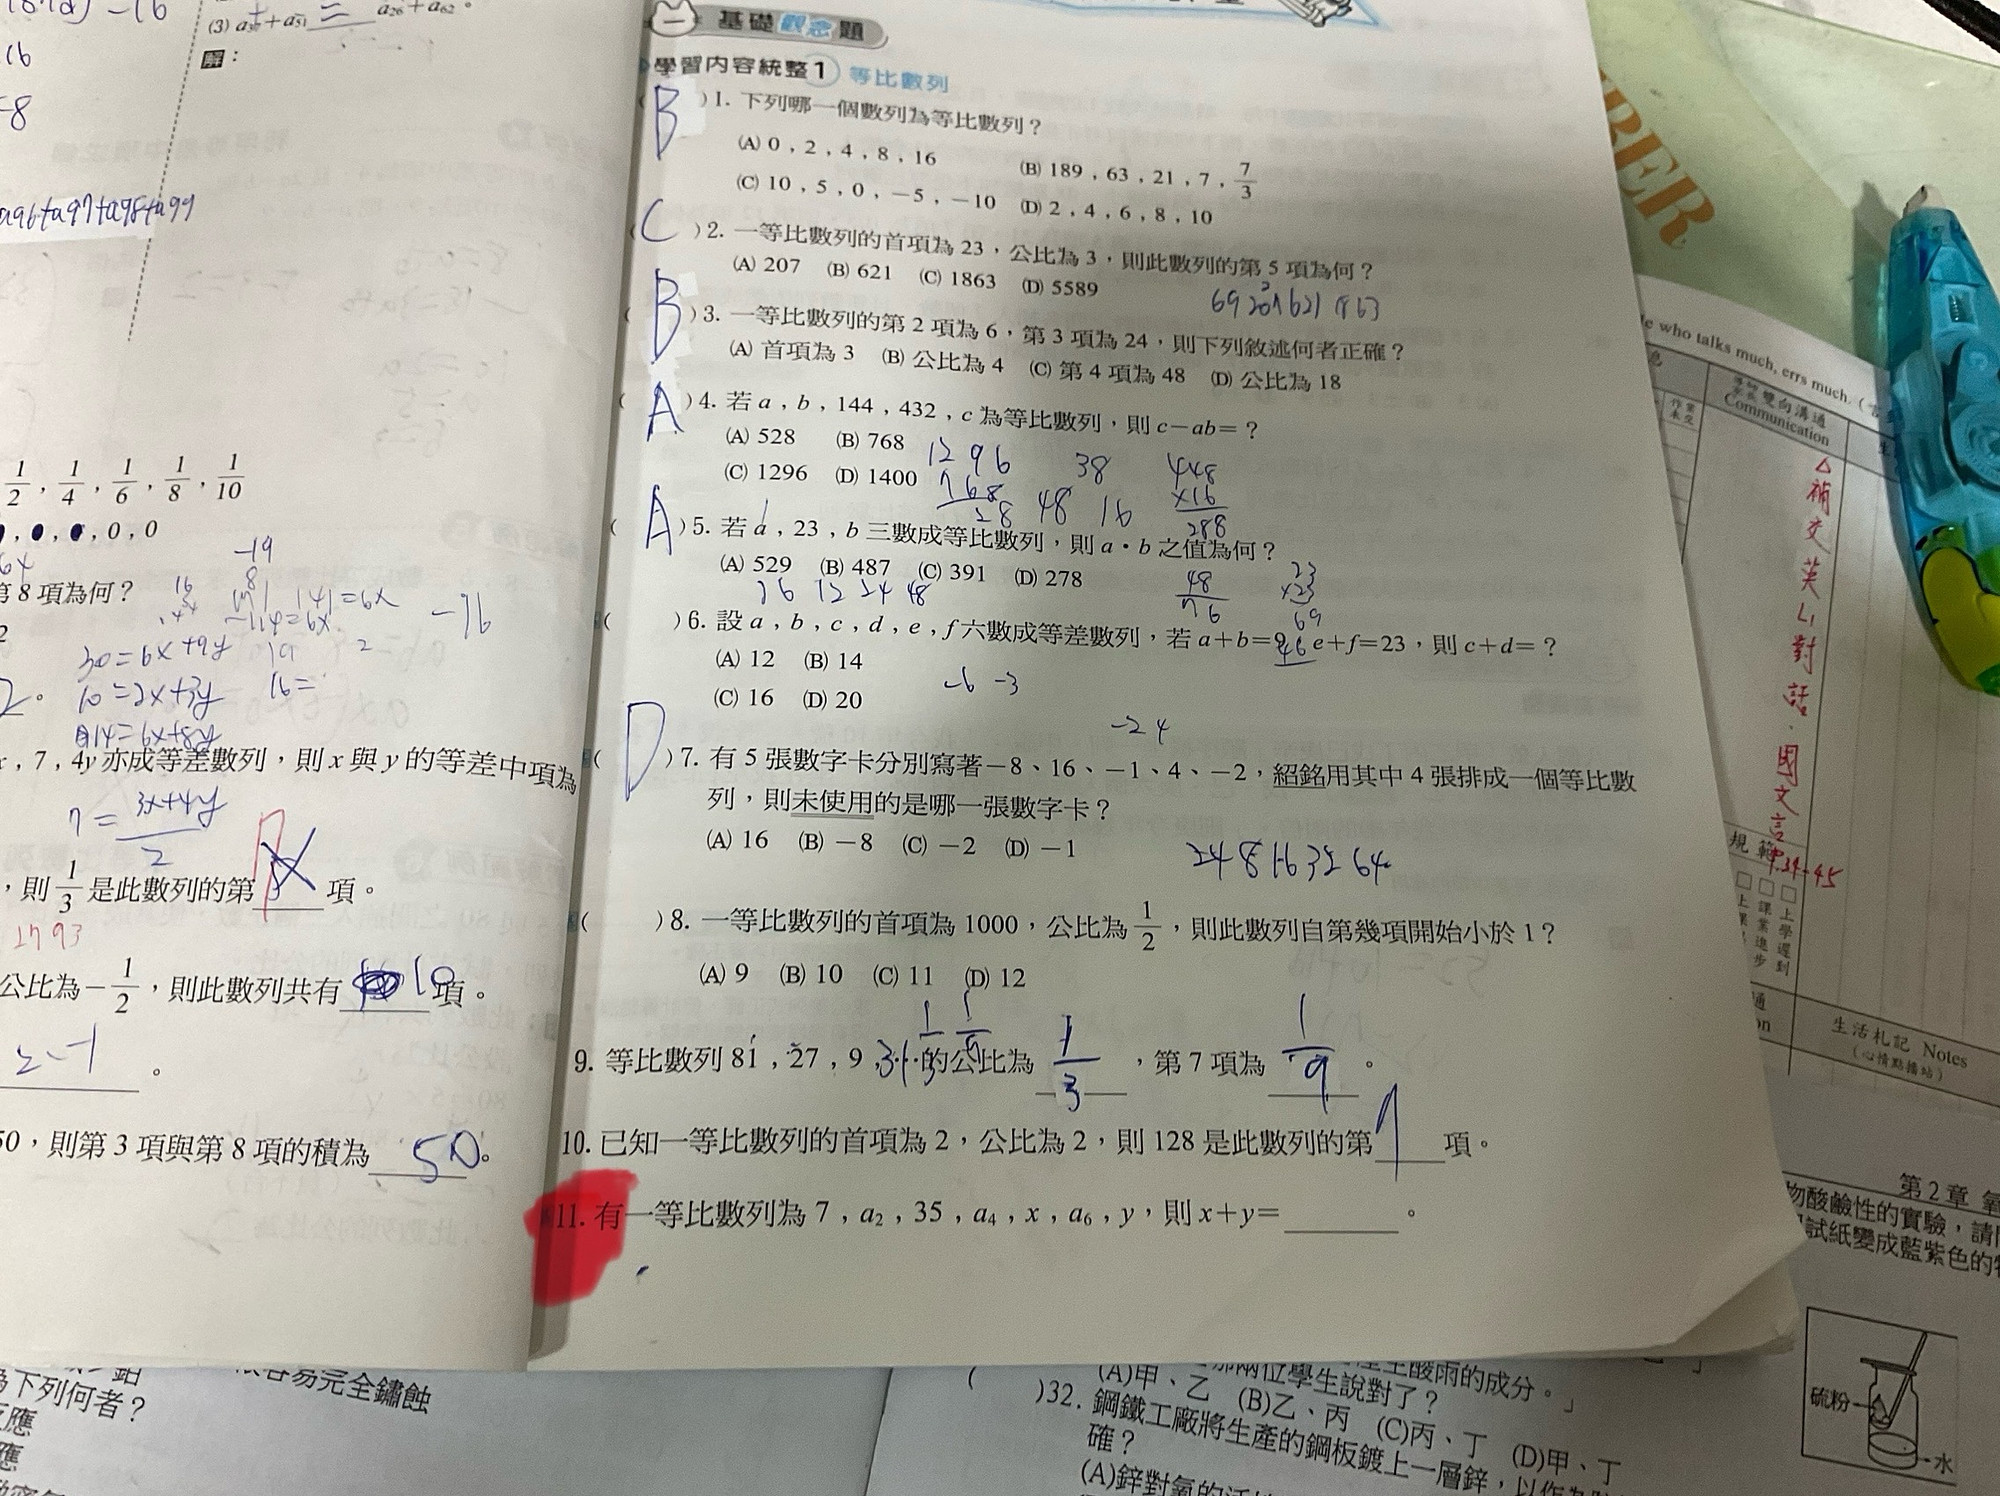 (3) a₃₇+a₅₁ = a₂₆+a₆₂。
解：
-16
16
-8
a96+a97+a98+a99
1/2，1/4，1/6，1/8，1/10
，0，0
第8項為何？
-19
141=6x
-114=6x
-96
30=6x+9y
10=2x+3y
16=
14=6x+8y
，7，4y亦成等差數列，則x與y的等差中項為
7=(3x+4y)/2
，則1/3是此數列的第 項。
公比為-1/2，則此數列共有 10 項。
2-1。
50，則第3項與第8項的積為 50。
一 基礎觀念題
學習內容統整1 等比數列
( B )1. 下列哪一個數列為等比數列？
(A) 0，2，4，8，16 (B) 189，63，21，7，7/3
(C) 10，5，0，-5，-10 (D) 2，4，6，8，10
( C )2. 一等比數列的首項為23，公比為3，則此數列的第5項為何？
(A) 207 (B) 621 (C) 1863 (D) 5589
69 207 621 1863
( B )3. 一等比數列的第2項為6，第3項為24，則下列敘述何者正確？
(A) 首項為3 (B) 公比為4 (C) 第4項為48 (D) 公比為18
( A )4. 若a，b，144，432，c為等比數列，則c-ab=？
(A) 528 (B) 768
(C) 1296 (D) 1400
1296 38 48
768 48 16 ×16
28 288
( A )5. 若a，23，b三數成等比數列，則a·b之值為何？
(A) 529 (B) 487 (C) 391 (D) 278
12 24 48
48 23
96 ×23
69
46
( )6. 設a，b，c，d，e，f六數成等差數列，若a+b=9，e+f=23，則c+d=？
(A) 12 (B) 14
(C) 16 (D) 20
-6 -3
-24
( D )7. 有5張數字卡分別寫著-8、16、-1、4、-2，紹銘用其中4張排成一個等比數
列，則未使用的是哪一張數字卡？
(A) 16 (B) -8 (C) -2 (D) -1
2 4 8 16 32 64
( )8. 一等比數列的首項為1000，公比為1/2，則此數列自第幾項開始小於1？
(A) 9 (B) 10 (C) 11 (D) 12
9. 等比數列81，27，9，3…的公比為 1/3，第7項為 1/9。
10. 已知一等比數列的首項為2，公比為2，則128是此數列的第 7 項。
11. 有一等比數列為7，a₂，35，a₄，x，a₆，y，則x+y= 。
BER
He who talks much, errs much.
雙向溝通
Communication
作業未交
補交英L1對話.國文言
P.34-45
規範
上課
課業進步
上學遲到
生活札記 Notes
(心情點播站)
第2章
物酸鹼性的實驗，請
試紙變成藍紫色的
硫粉
水
很容易完全鏽蝕
為下列何者？
反應
應
那兩位學生說對了？
酸雨的成分。」
(A)甲、乙 (B)乙、丙 (C)丙、丁 (D)甲、丁
( )32. 鋼鐵工廠將生產的鋼板鍍上一層鋅，以作為
確？
(A)鋅對氧的活